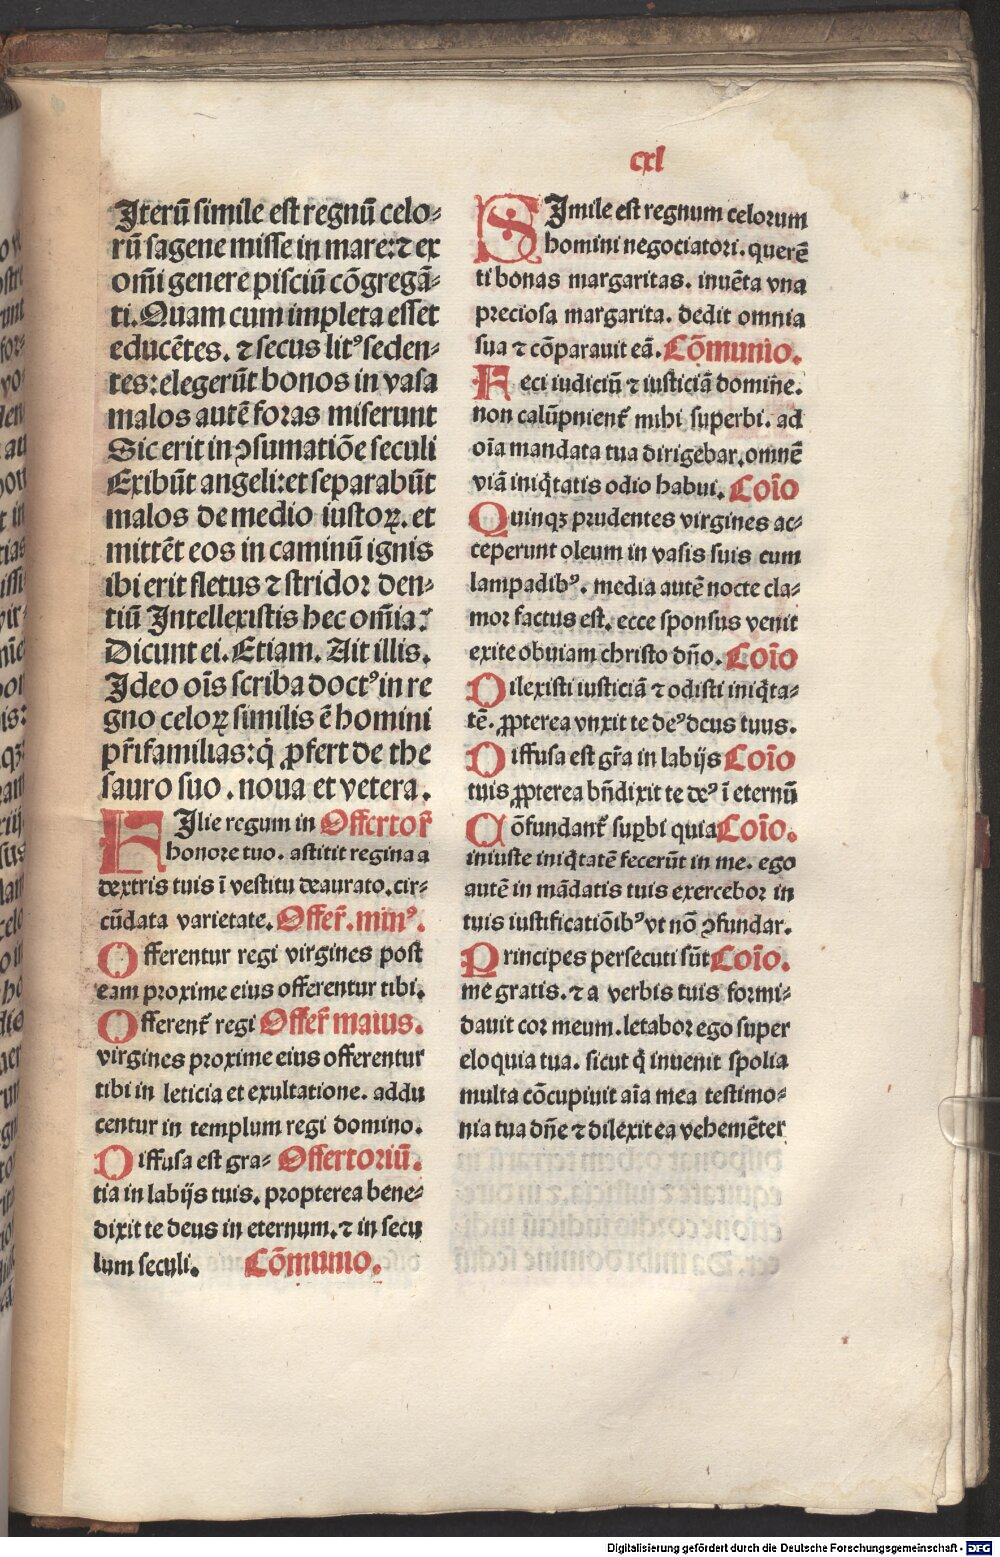 cxl
Iterū simile est regnū celo⸗
rū sagene misse in mare: ⁊ ex
om̄i genere pisciū cōgregā⸗
ti. Quam cum impleta esset
educētes. ⁊ secus litꝰ seden⸗
tes: elegerūt bonos in vasa
malos autē foras miserunt
Sic erit in ꝯsumatiōe seculi
Exibūt angeli: et separabūt
malos de medio iustoꝝ. et
mittēt eos in caminū ignis
ibi erit fletus ⁊ stridor den⸗
tiū Intellexistis hec om̄ia?
Dicunt ei. Etiam. Ait illis.
Ideo oīs scriba doctꝰ in re
gno celoꝝ similis ē homini
pr̄ifamilias: q̇ ꝓfert de the
sauro suo . noua et vetera .
FIlie regum in Offertor̄
honore tuo . astitit regina a
dextris tuis ī vestitu deaurato. cir⸗
cūdata varietate. Offer̄. minꝰ.
Offerentur regi virgines post
eam proxime eius offerentur tibi.
Offerent̄ regi Offer̄ maius.
virgines proxime eius offerentur
tibi in leticia et exultatione. addu
centur in templum regi domino.
Diffusa est gra⸗ Offertoriū.
tia in labijs tuis. propterea bene⸗
dixit te deus in eternum. ⁊ in secu
lum seculi. Cōmunio.
SImile est regnum celorum
homini negociatori. querē
ti bonas margaritas. inuēta vna
preciosa margarita. dedit omnia
sua ⁊ cōparauit eā. Cōmunio.
Feci iudiciū ⁊ iusticiā domine.
non calūpnient̄ mihi superbi. ad
oīa mandata tua dirigebar. omnē
viā iniq̇tatis odio habui. Coīo
Quinqꝫ prudentes virgines ac⸗
ceperunt oleum in vasis suis cum
lampadibꝰ. media autē nocte cla⸗
mor factus est. ecce sponsus venit
exite obuiam christo dn̄o. Coīo
Dilexisti iusticiā ⁊ odisti iniq̇ta⸗
tē. ꝓpterea vnxit te deꝰ deus tuus.
Diffusa est gr̄a in labijs Coīo
tuis ꝓpterea bn̄dixit te deꝰ ī eternū
Cōfundant̄ suꝑbi quia Coīo.
iniuste iniq̇tatē fecerūt in me. ego
autē in mādatis tuis exercebor in
tuis iustificatiōibꝰ vt nō ꝯfundar.
Principes persecuti sūt Coīo.
me gratis. ⁊ a verbis tuis formi⸗
dauit cor meum. letabor ego super
eloquia tua. sicut q̇ inuenit spolia
multa cōcupiuit aīa mea testimo⸗
nia tua dn̄e ⁊ dilexit ea vehemēter
Digitalisierung gefördert durch die Deutsche Forschungsgemeinschaft - DFG